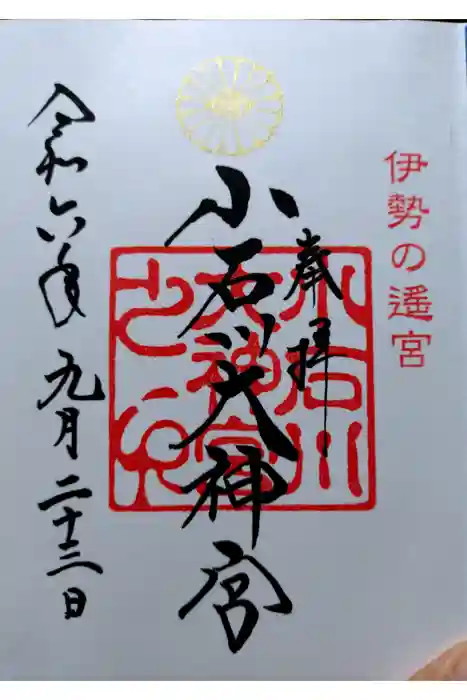 伊勢の遥宮
奉拝
小石川大神宮
小石川大神宮之印
令和六年九月二十三日